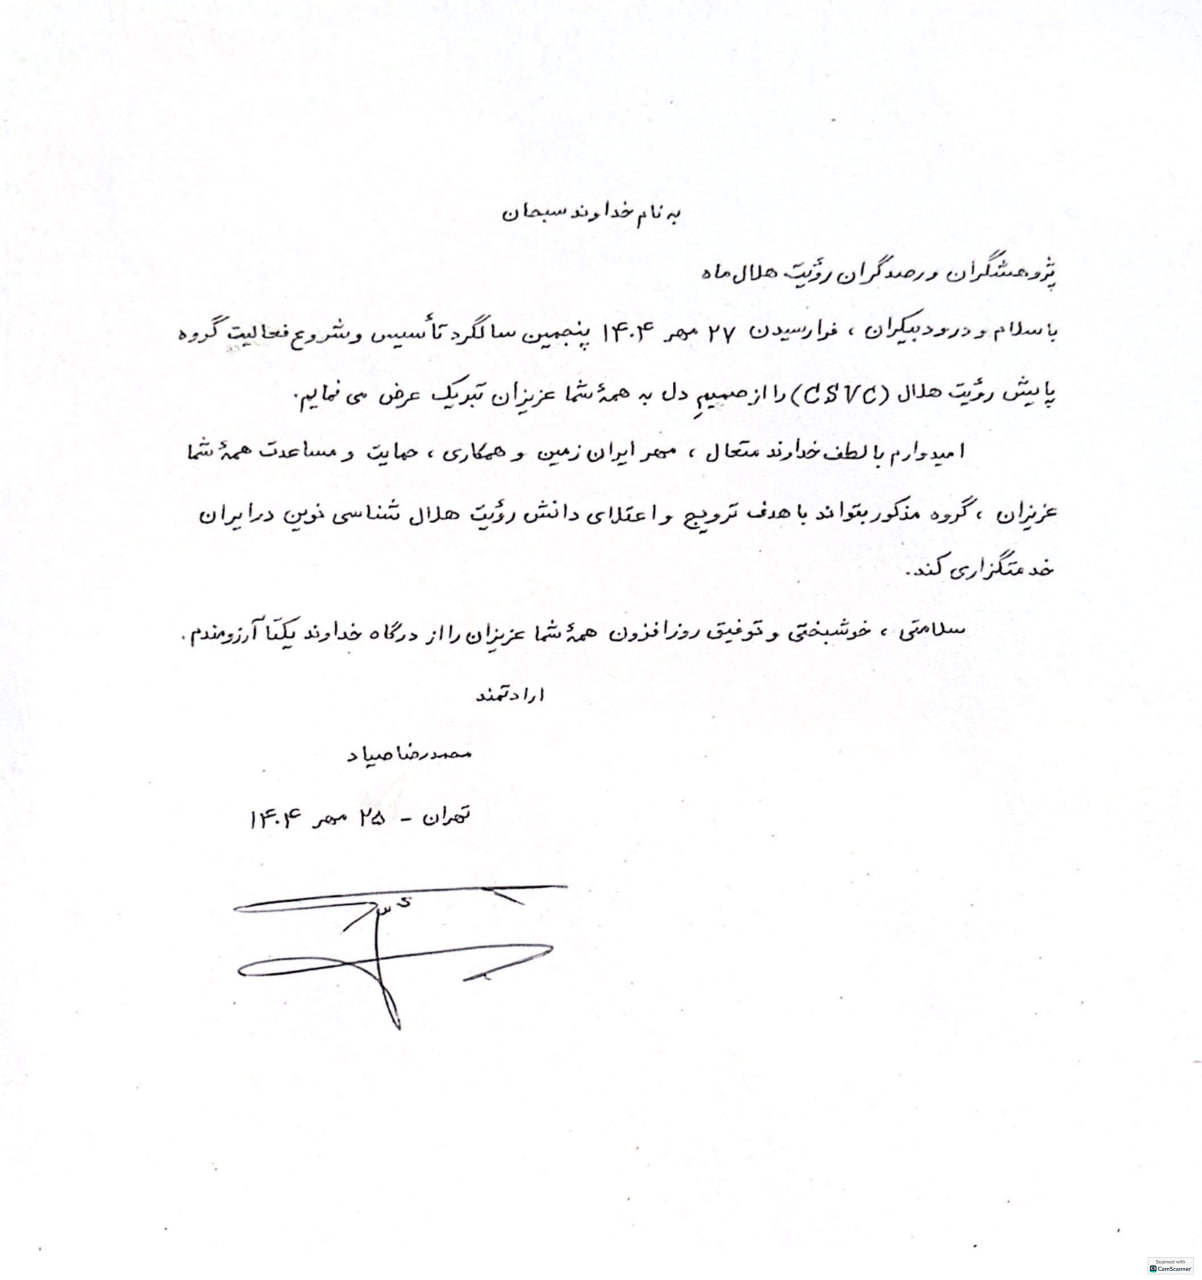 به نام خداوند سبحان
پژوهشگران و رصدگران رؤیت هلال ماه
با سلام و درود بیکران ، فرارسیدن ۲۷ مهر ۱۴۰۴ پنجمین سالگرد تأسیس و شروع فعالیت گروه
پایش رؤیت هلال (CSVC) را از صمیمِ دل به همهٔ شما عزیزان تبریک عرض می نمایم.
امیدوارم با لطف خداوند متعال ، مهر ایران زمین و همکاری ، حمایت و مساعدت همهٔ شما
عزیزان ، گروه مذکور بتواند با هدف ترویج و اعتلای دانش رؤیت هلال شناسی نوین در ایران
خدمتگزاری کند.
سلامتی ، خوشبختی و توفیق روزافزون همهٔ شما عزیزان را از درگاه خداوند یکتا آرزومندم.
ارادتمند
محمدرضا صیاد
تهران - ۲۵ مهر ۱۴۰۴
Scanned with
CS CamScanner